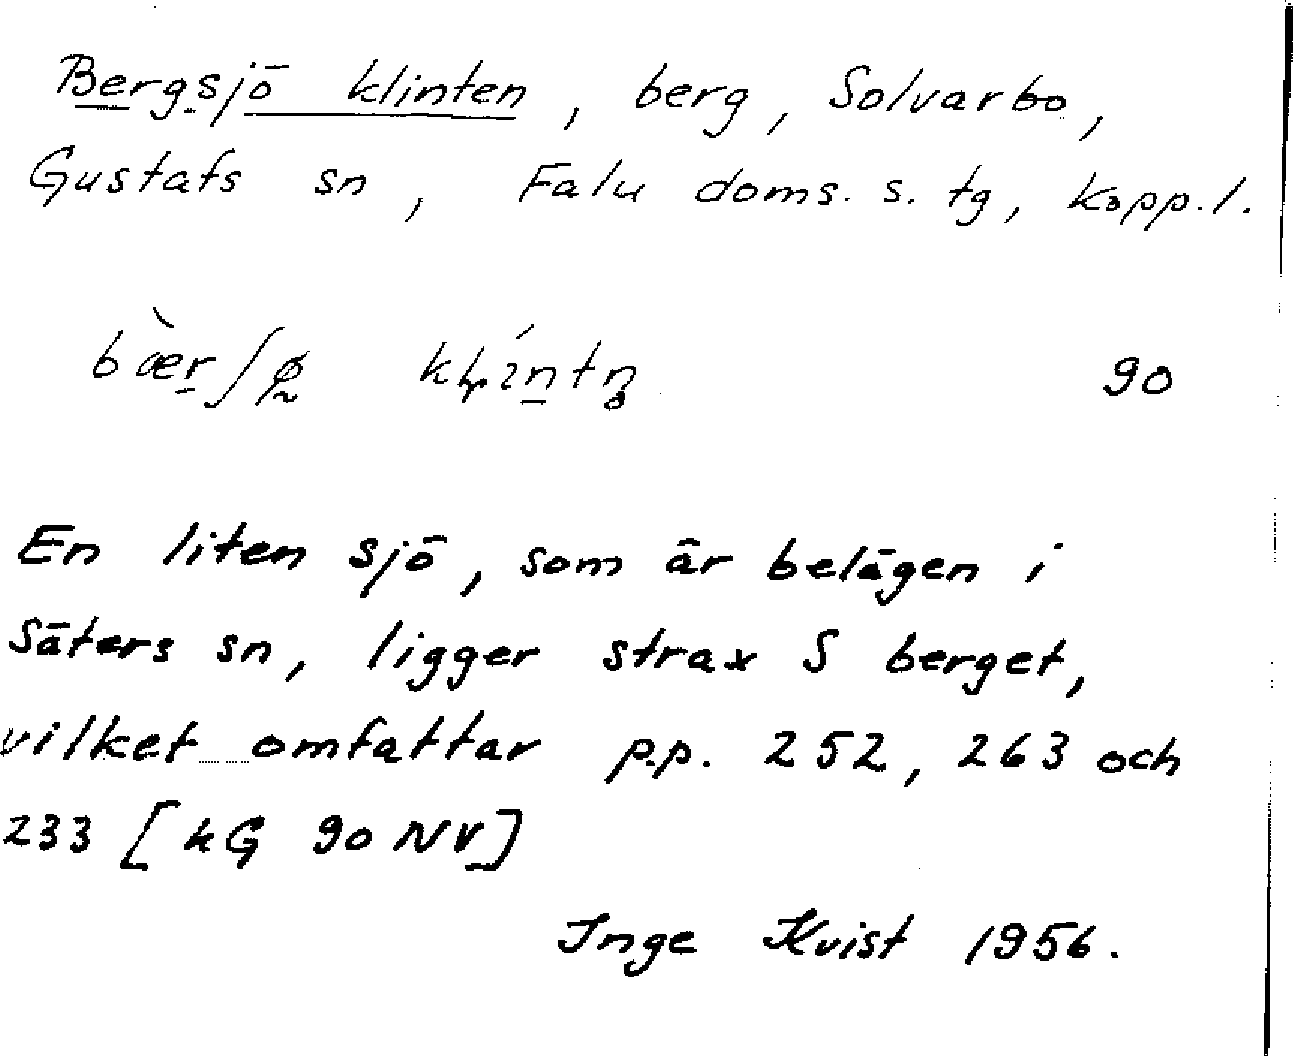 Bergsjö klinten, berg, Solvarbo,
Gustafs sn, Falu doms. s. tg, Kopp. l.
90
En liten sjö, som är belägen i
Säters sn, ligger strax S berget,
vilket omfattar p.p. 252, 263 och
233 [kG 90 NV]
Inge Kvist 1956.